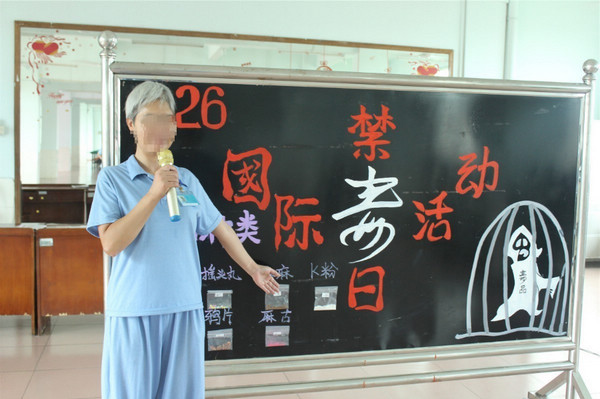 26
国际禁毒日活动
类
摇头丸
麻
K粉
鸦片
麻古
毒品